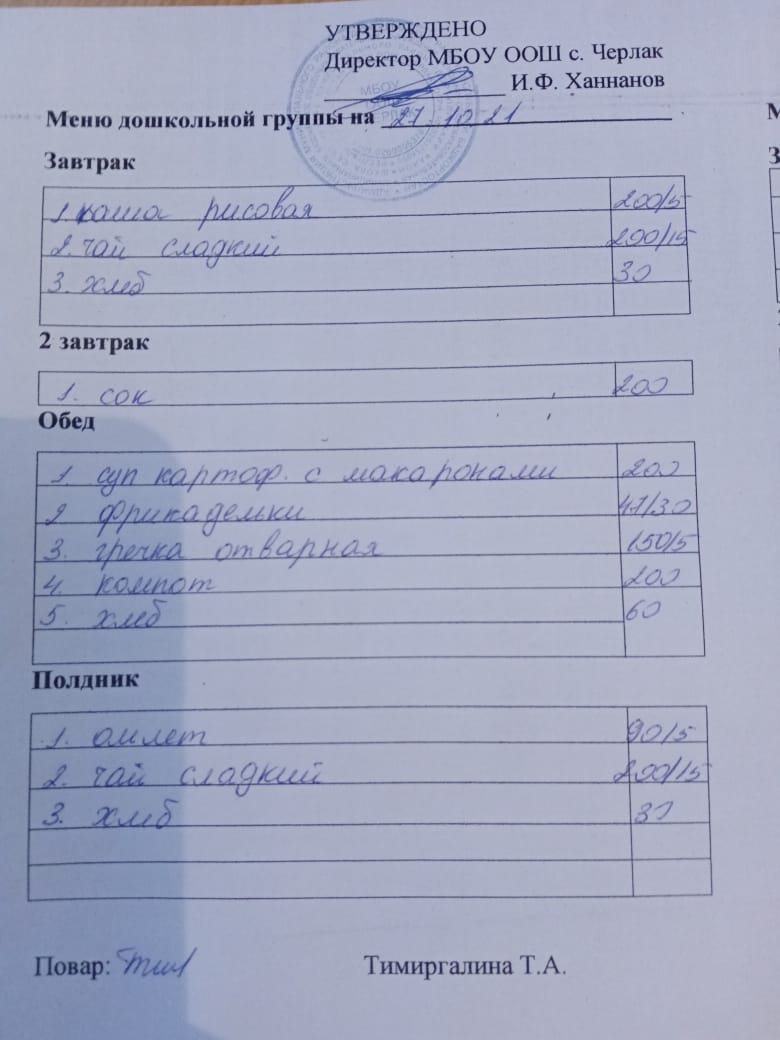 УТВЕРЖДЕНО
Директор МБОУ ООШ с. Черлак
И.Ф. Ханнанов
Меню дошкольной группы на 27.10.21
Завтрак
1. каша рисовая 200/5
2. чай сладкий 200/15
3. хлеб 30
2 завтрак
1. сок 200
Обед
1 суп картоф. с макаронами 200
2 фрикадельки 47/30
3. гречка отварная 150/5
4. компот 200
5. хлеб 60
Полдник
1. омлет 90/5
2. чай сладкий 200/15
3. хлеб 30
Повар: Тимиргалина Т.А.